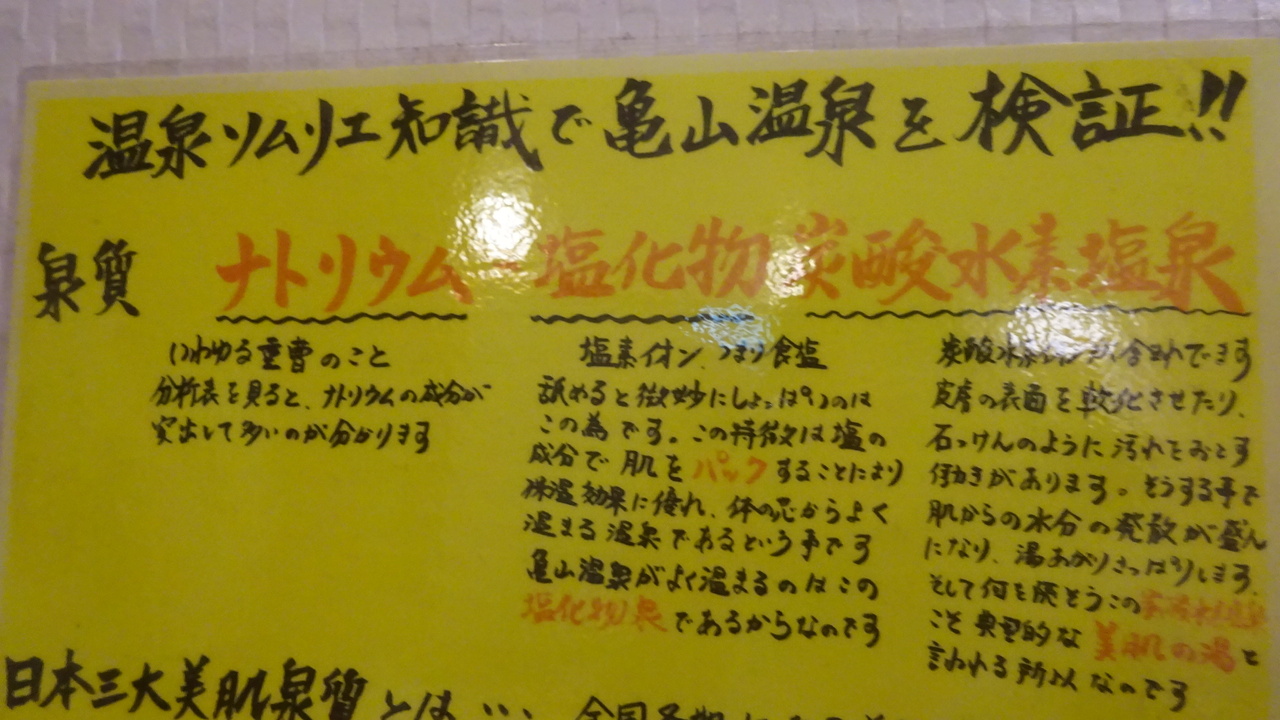 温泉ソムリエ知識で亀山温泉を検証!!
泉質
ナトリウム-塩化物炭酸水素塩泉
いわゆる重曹のこと
分析表を見ると、ナトリウムの成分が
突出して多いのが分かります
塩素イオン、つまり食塩
舐めると微妙にしょっぱいのは
この為です。この特徴は塩の
成分で肌をパックすることにより
保温効果に優れ、体の芯からよく
温まる温泉であるという事です
亀山温泉がよく温まるのはこの
塩化物泉であるからなのです
炭酸水素イオンが含まれてます
皮膚の表面を軟化させたり、
石っけんのように汚れをおとす
働きがあります。そうする事で
肌からの水分の発散が盛ん
になり、湯あがりさっぱりします。
そして何を隠そうこの
こそ典型的な美肌の湯と
言われる所以なのです
日本三大美肌泉質とは…